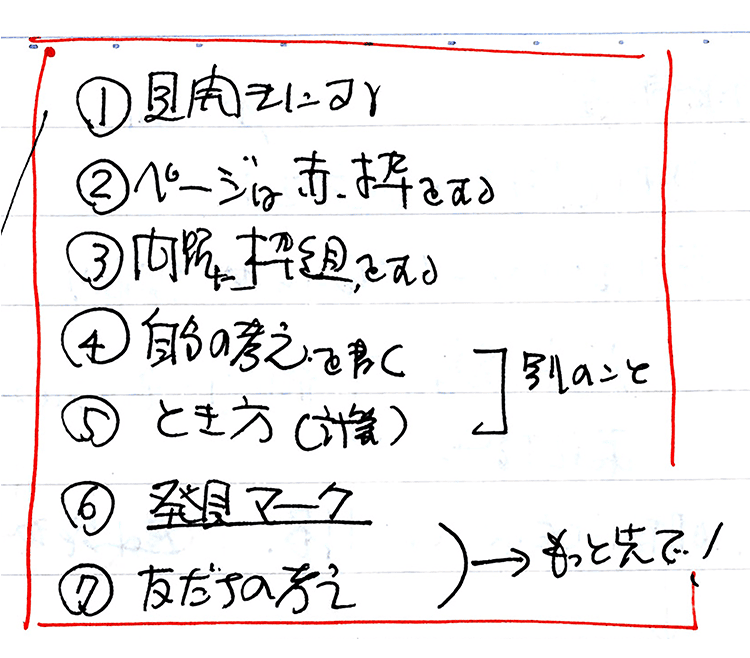 ① 見開きにする
② ページは赤枠をする
③ 問題に枠組をする
④ 自分の考えを書く
⑤ とき方(計算)
別のこと
⑥ 発見マーク
⑦ 友だちの考え
→ もっと先で!